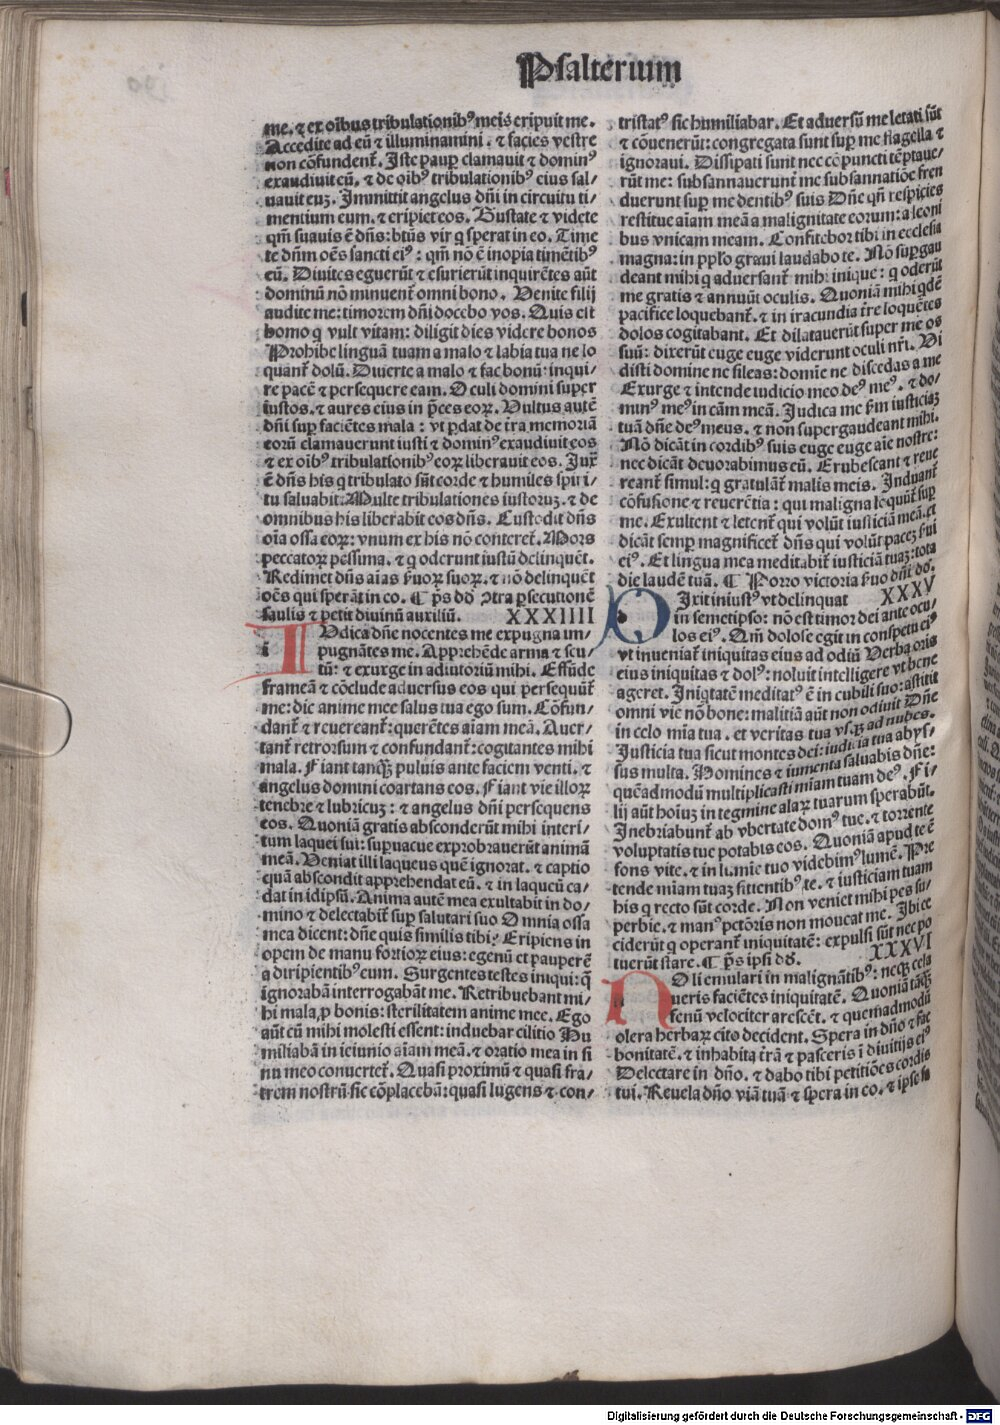 Psalterium
me. ⁊ ex oı̄bus tribulationibꝰ meis eripuit me.
Accedite ad eū ⁊ illuminamini. ⁊ facies vestre
non cōfundent̄. Iste paup̄ clamauit ⁊ dominꝰ
exaudiuit eū. ⁊ de oı̄bꝰ tribulationibꝰ eius sal/
uauit euꝫ. Immittit angelus dn̄i in circuitu ti/
mentium eum. ⁊ eripiet eos. Gustate ⁊ videte
qm̄ suauis ē dn̄s: btūs vir q sperat in eo. Time
te dn̄m oēs sancti eiꝰ: qm̄ nō ē inopia timētibꝰ
eū. Diuites eguerūt ⁊ esurierūt inquirētes aūt
dominū nō minuent̄ omni bono. Venite filij
audite me: timorem dn̄i docebo vos. Quis est
homo q vult vitam: diligit dies videre bonos
Prohibe linguā tuam a malo ⁊ labia tua ne lo
quant̄ dolū. Diuerte a malo ⁊ fac bonū: inqui/
re pacē ⁊ persequere eam. Oculi domini super
iustos. ⁊ aures eius in p̄ces eoꝝ. Vultus autē
dn̄i sup̄ faciētes mala: vt p̄dat de tr̄a memoriā
eorū clamauerunt iusti ⁊ dominꝰ exaudiuit eos
⁊ ex oı̄bꝰ tribulationibꝰ eoꝝ liberauit eos. Iux̄
ē dn̄s his q tribulato sūt corde ⁊ humiles spiri/
tu saluabit. Multe tribulationes iustoruꝫ. ⁊ de
omnibus his liberabit eos dn̄s. Custodit dn̄s
oı̄a ossa eoꝝ: vnum ex his nō conteret̄. Mors
peccatoꝝ pessima. ⁊ q oderunt iustū delinquēt.
Redimet dn̄s aı̄as s̄uoꝝ suoꝝ. ⁊ nō delinquēt
oēs qui sperāt in eo. ¶ p̄s dd̄ ꝯtra p̄secutionē
saulis ⁊ petit diuinū auxiliū. XXXIIII
IVdica dn̄e nocentes me expugna im/
pugnātes me. Apprehēde arma ⁊ scu/
tū: ⁊ exurge in adiutoriū mihi. Effūde
frameā ⁊ cōclude aduersus eos qui persequūt̄
me: dic anime mee salus tua ego sum. Cōfun/
dant̄ ⁊ reuereant̄: querētes aı̄am meā. Auer/
tant̄ retrorsum ⁊ confundant̄: cogitantes mihi
mala. Fiant tanqꝫ puluis ante faciem venti. ⁊
angelus domini coartans eos. Fiant vie illoꝝ
tenebre ⁊ lubricuꝫ: ⁊ angelus dn̄i persequens
eos. Quoniā gratis absconderūt mihi interi/
tum laquei sui: sup̄uacue exprobrauerūt animā
meā. Veniat illi laqueus quē ignorat. ⁊ captio
quā abscondit apprehendat eū. ⁊ in laqueū ca/
dat in idipsū. Anima autē mea exultabit in do/
mino ⁊ delectabit̄ sup̄ salutari suo Omnia ossa
mea dicent: dn̄e quis similis tibi? Eripiens in
opem de manu fortioꝝ eius: egenū et pauperē
a diripientibꝰ eum. Surgentes testes iniqui: q̄
ignorabā interrogabāt me. Retribuebant mi/
hi mala ꝓ bonis: sterilitatem anime mee. Ego
aūt cū mihi molesti essent: induebar cilitio Hu
miliabā in ieiunio aı̄am meā. ⁊ oratio mea in si
nu meo conuertet̄. Quasi proximū ⁊ quasi fra/
trem nostrū sic cōplacebā: quasi lugens ⁊ con/
tristatꝰ sic humiliabar. Et aduersū me letati sūt
⁊ cōuenerūt: congregata sunt sup̄ me flagella ⁊
ignoraui. Dissipati sunt nec cōpuncti tēptaue/
rūt me: subsannauerunt̄ me subsannatiōe fren
duerunt sup̄ me dentibꝰ suis Dn̄e qn̄ respicies
restitue aı̄am meā a malignitate eorum: a leoni
bus vnicam meam. Confitebor tibi in ecclesia
magna: in pp̄lo graui laudabo te. Nō sup̄gau
deant mihi q aduersant̄ mihi inique: q oderūt
me gratis ⁊ annuūt oculis. Quoniā mihi qdē
pacifice loquebant̄. ⁊ in iracundia tr̄e loquētes
dolos cogitabant. Et dilatauerūt super me os
suū: dixerūt euge euge viderunt oculi nr̄i. Vi
disti domine ne sileas: domīe ne discedas a me
Exurge ⁊ intende iudicio meo deꝰ meꝰ. ⁊ do/
minꝰ meꝰ in cām meā. Iudica me s̄m iusticiaꝫ
tuā dn̄e deꝰ meus. ⁊ non supergaudeant mihi.
Nō dicāt in cordibꝰ suis euge euge aı̄e nostre:
nec dicāt deuorabimus eū. Erubescant ⁊ reue
reant̄ simul: q gratulāt̄ malis meis. Induant̄
cōfusione ⁊ reuerētia: qui maligna loquūt̄ sup̄
me. Exultent ⁊ letent̄ qui volūt iusticiā meā. et
dicāt semp̄ magnificet̄ dn̄s qui volūt paceꝫ s̄ui
eiꝰ. Et lingua mea meditabit̄ iusticiā tuaꝫ: tota
die laudē tuā. ¶ Porro victoria s̄uo dn̄i dd̄.
DIxit iniustꝰ vt delinquat XXXV
in semetipso: nō est timor dei ante ocu/
los eiꝰ. Qm̄ dolose egit in conspetu eiꝰ
vt inueniat̄ iniquitas eius ad odiū Verba oris
eius iniquitas ⁊ dolꝰ: noluit intelligere vt bene
ageret. Iniqtatē meditatꝰ ē in cubili suo: astitit
omni vie nō bone: malitiā aūt non odiuit Dn̄e
in celo mia tua. et veritas tua vsqꝫ ad nubes.
Iusticia tua sicut montes dei: iudicia tua abys/
sus multa. Homines ⁊ iumenta saluabis dn̄e:
quēadmodū multiplicasti mı̄am tuam deꝰ. Fi/
lij aūt hoı̄uꝫ in tegmine alaꝝ tuarum sperabūt.
Inebriabunt̄ ab vbertate domꝰ tue. ⁊ torrente
voluptatis tue potabis eos. Quoniā apud te ē
fons vite. ⁊ in lumīe tuo videbimꝰ lumē. Pre
tende mı̄am tuaꝫ scientibꝰ te. ⁊ iusticiam tuam
his q recto sūt corde. Non veniet mihi pes su/
perbie. ⁊ manꝰ pctōris non moueat me. Ibi ce
ciderūt q operant̄ iniquitatē: expulsi sūt nec po
tuerūt stare. ¶ p̄s ipsi dd̄. XXXVI
NOli emulari in malignātibꝰ: neqꝫ zela
ueris faciētes iniquitatē. Quoniā tāqꝫ
fenū velociter arescēt. ⁊ quemadmodū
olera herbaꝝ cito decident. Spera in dn̄o ⁊ fac
bonitatē. ⁊ inhabita tr̄ā ⁊ pasceris ī diuitijs eiꝰ
Delectare in dn̄o. ⁊ dabo tibi petitiōes cordis
tui. Reuela dn̄o viā tuā ⁊ spera in eo. ⁊ ipse fa
Digitalisierung gefördert durch die Deutsche Forschungsgemeinschaft - DFG